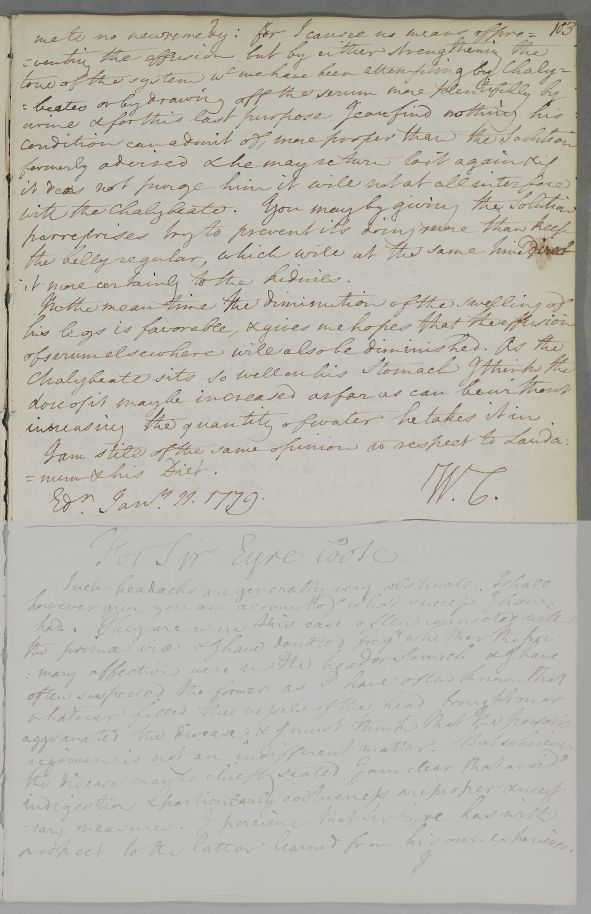 103
me to no new remedy: for I can see no means of pre=
=venting the effusion but by either strengthening the
tone of the system wc we have been attempting by Chaly=
=beates or by drawing off the serum more plentifully by
urine & for this last purpose I can find nothing his
condition can admit of, more proper than the Solution
formerly advised & he may return to it again & if
it does not purge him it will not at all interfere
with the Chalybeate. You may by giving the Solution
par reprises try to prevent its doing more than keep
the belly regular, which will at the same time direct
it more certainly to the kednies.
In the mean time the diminution of the swelling of
his legs is favorable, & gives me hopes that the effusion
of serum elsewhere will also be diminished. As the
Chalybeate sits so well on his Stomach I think the
dose of it may be increased as far as can be without
increasing the quantity of water he takes it in.
I am still of the same opinion as respect to Lauda:
=num & his Diet.
Edr. Jany. 11. 1779. W. C.
For Sir Eyre Coote.
Such headachs are generally very obstinate. I shall
however give you an account of what success I have
had. They are as in this case often connected with
the primæ viæ & I have doubted freqy. whether the pri:
:mary affection were in the head or stomach & I have
often suspected the former as I have often known that
whatever filled the vessels of the head brought on or
aggravated the disease & I must think that the person's
regimen is not an indifferent matter. But wherever
the disease may be chiefly seated I am clear that avoidg.
indigestion & particularly costiveness are proper & neces:
:sary measures. I perceive that Sir Eyre has with
respect to the latter learned from his own experience.
I